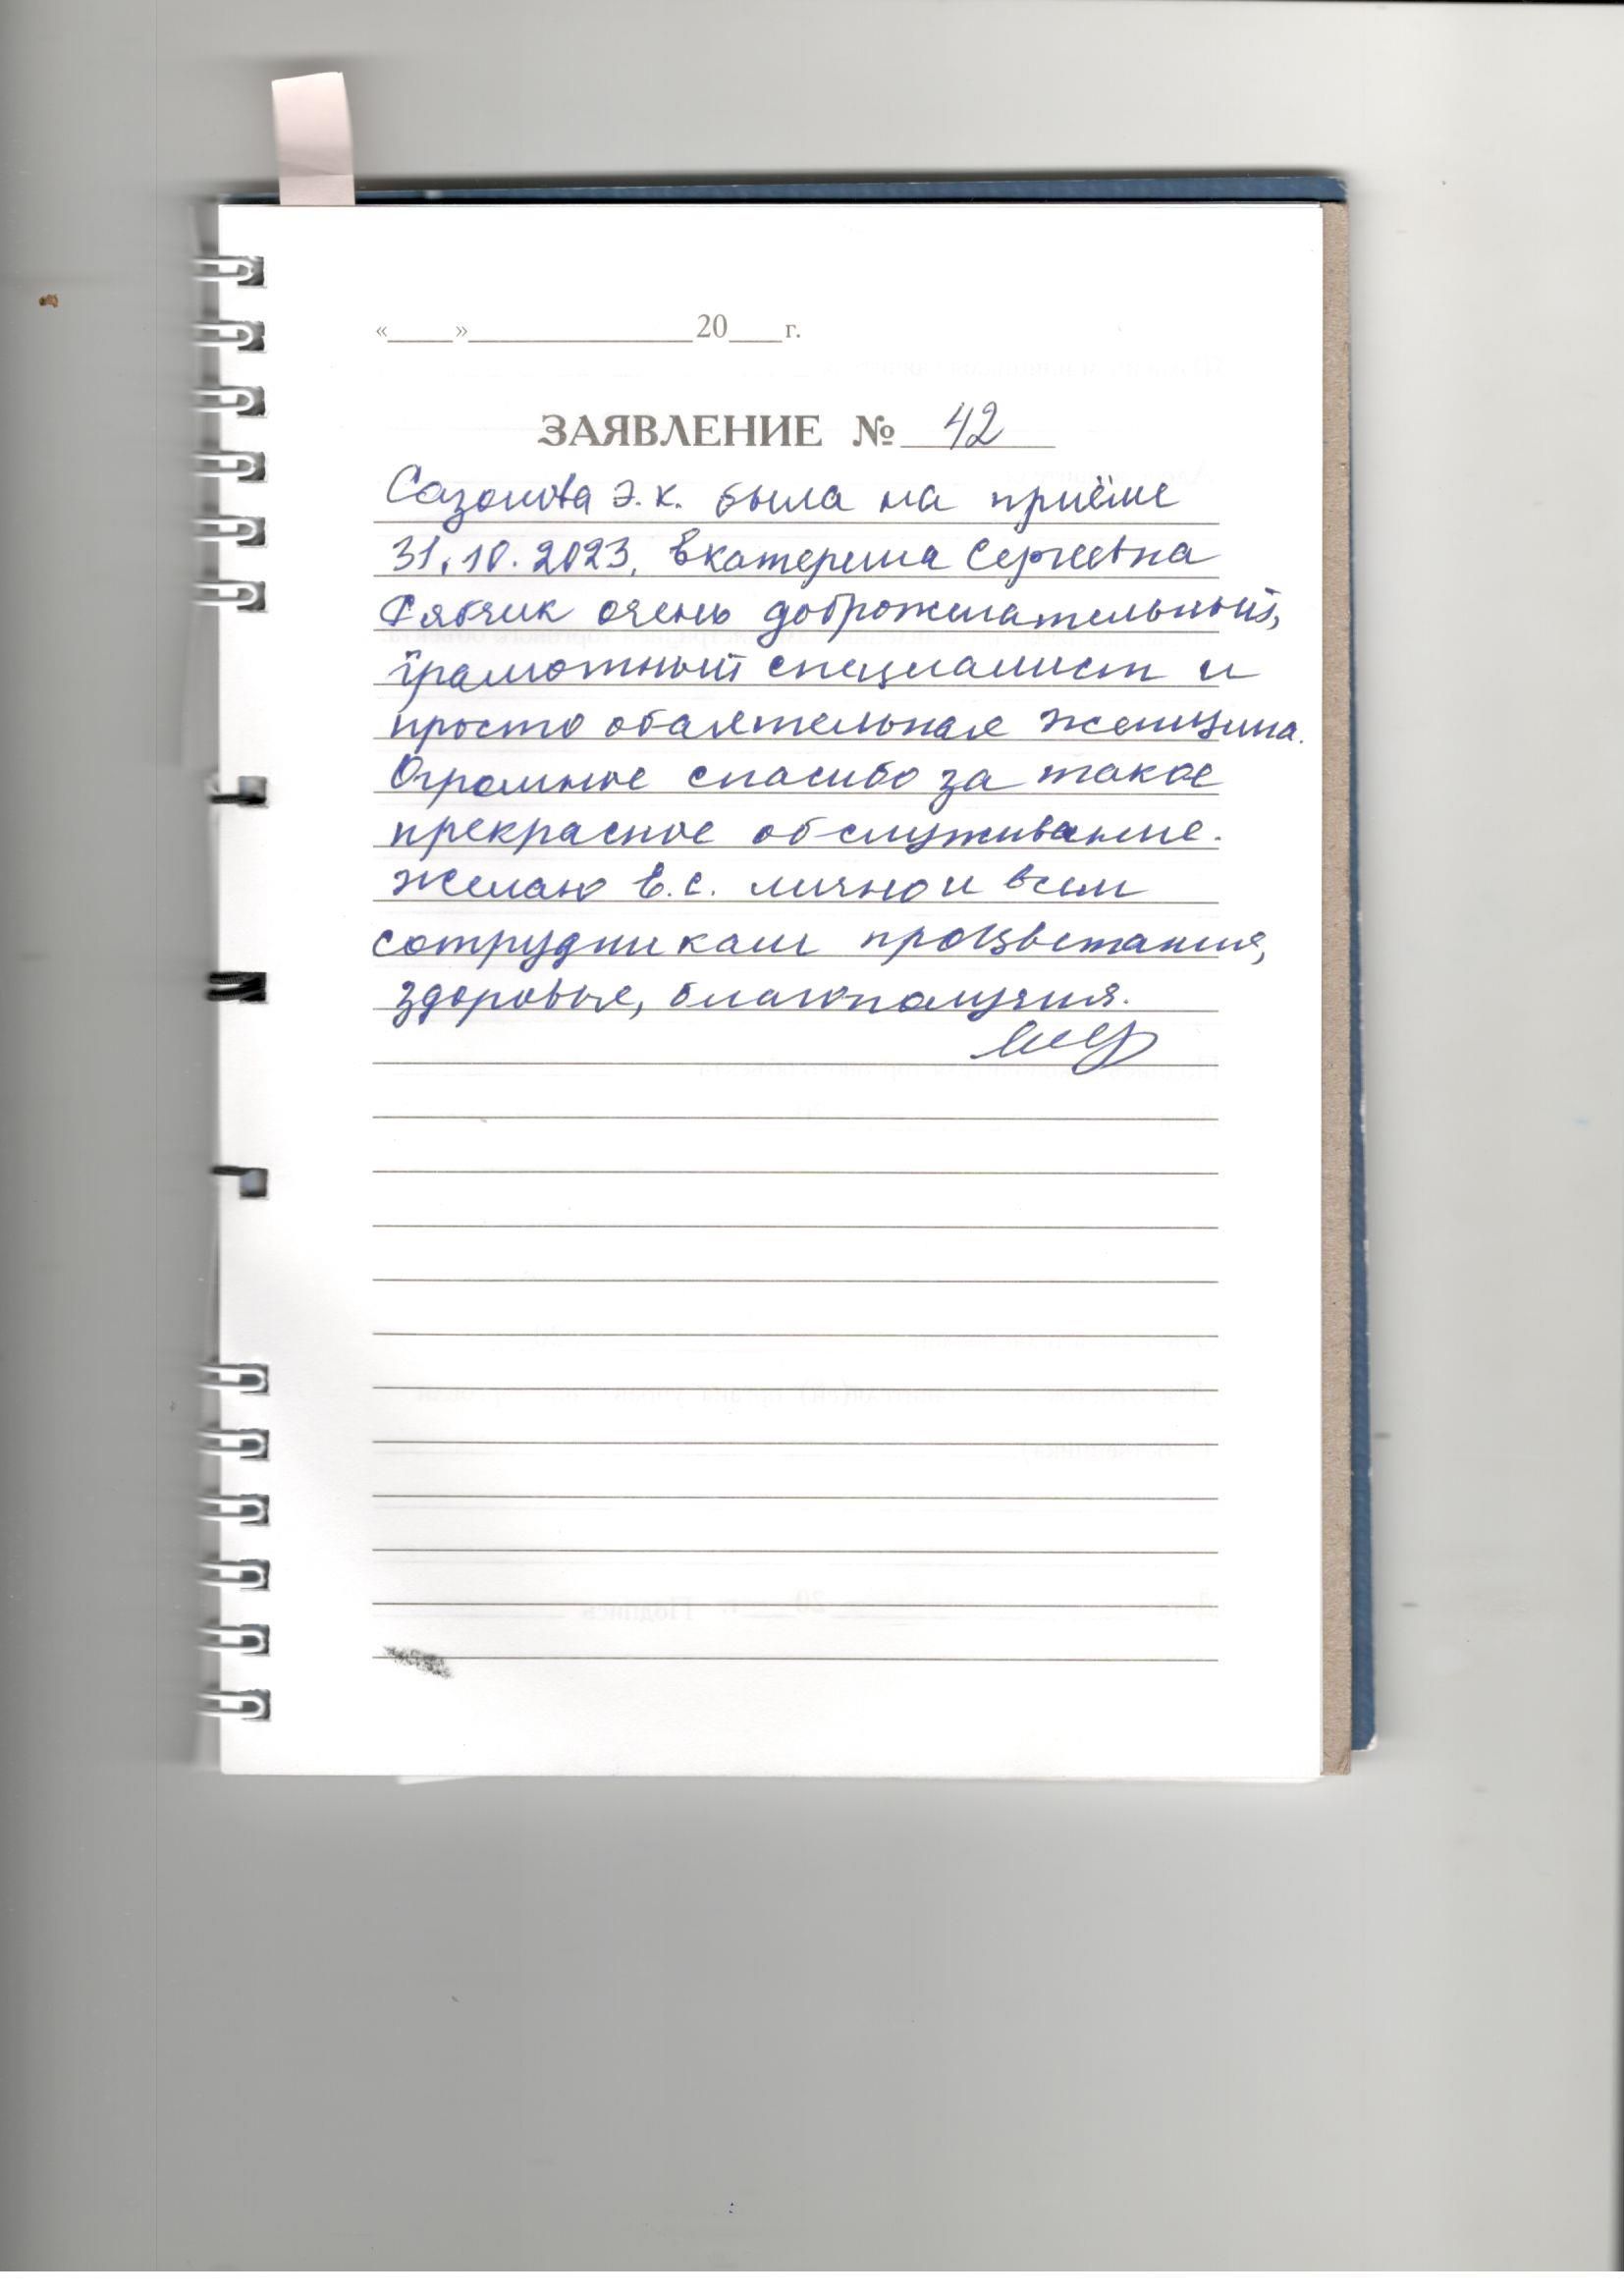 «____»______________20___г.
ЗАЯВЛЕНИЕ № 42
Сазонова Э.К. была на приёме
31.10.2023. Екатерина Сергеевна
Рябчик очень доброжелательный,
грамотный специалист и
просто обаятельная женщина.
Огромное спасибо за такое
прекрасное обслуживание.
Желаю Е.С. лично и всем
сотрудникам процветания,
здоровья, благополучия.